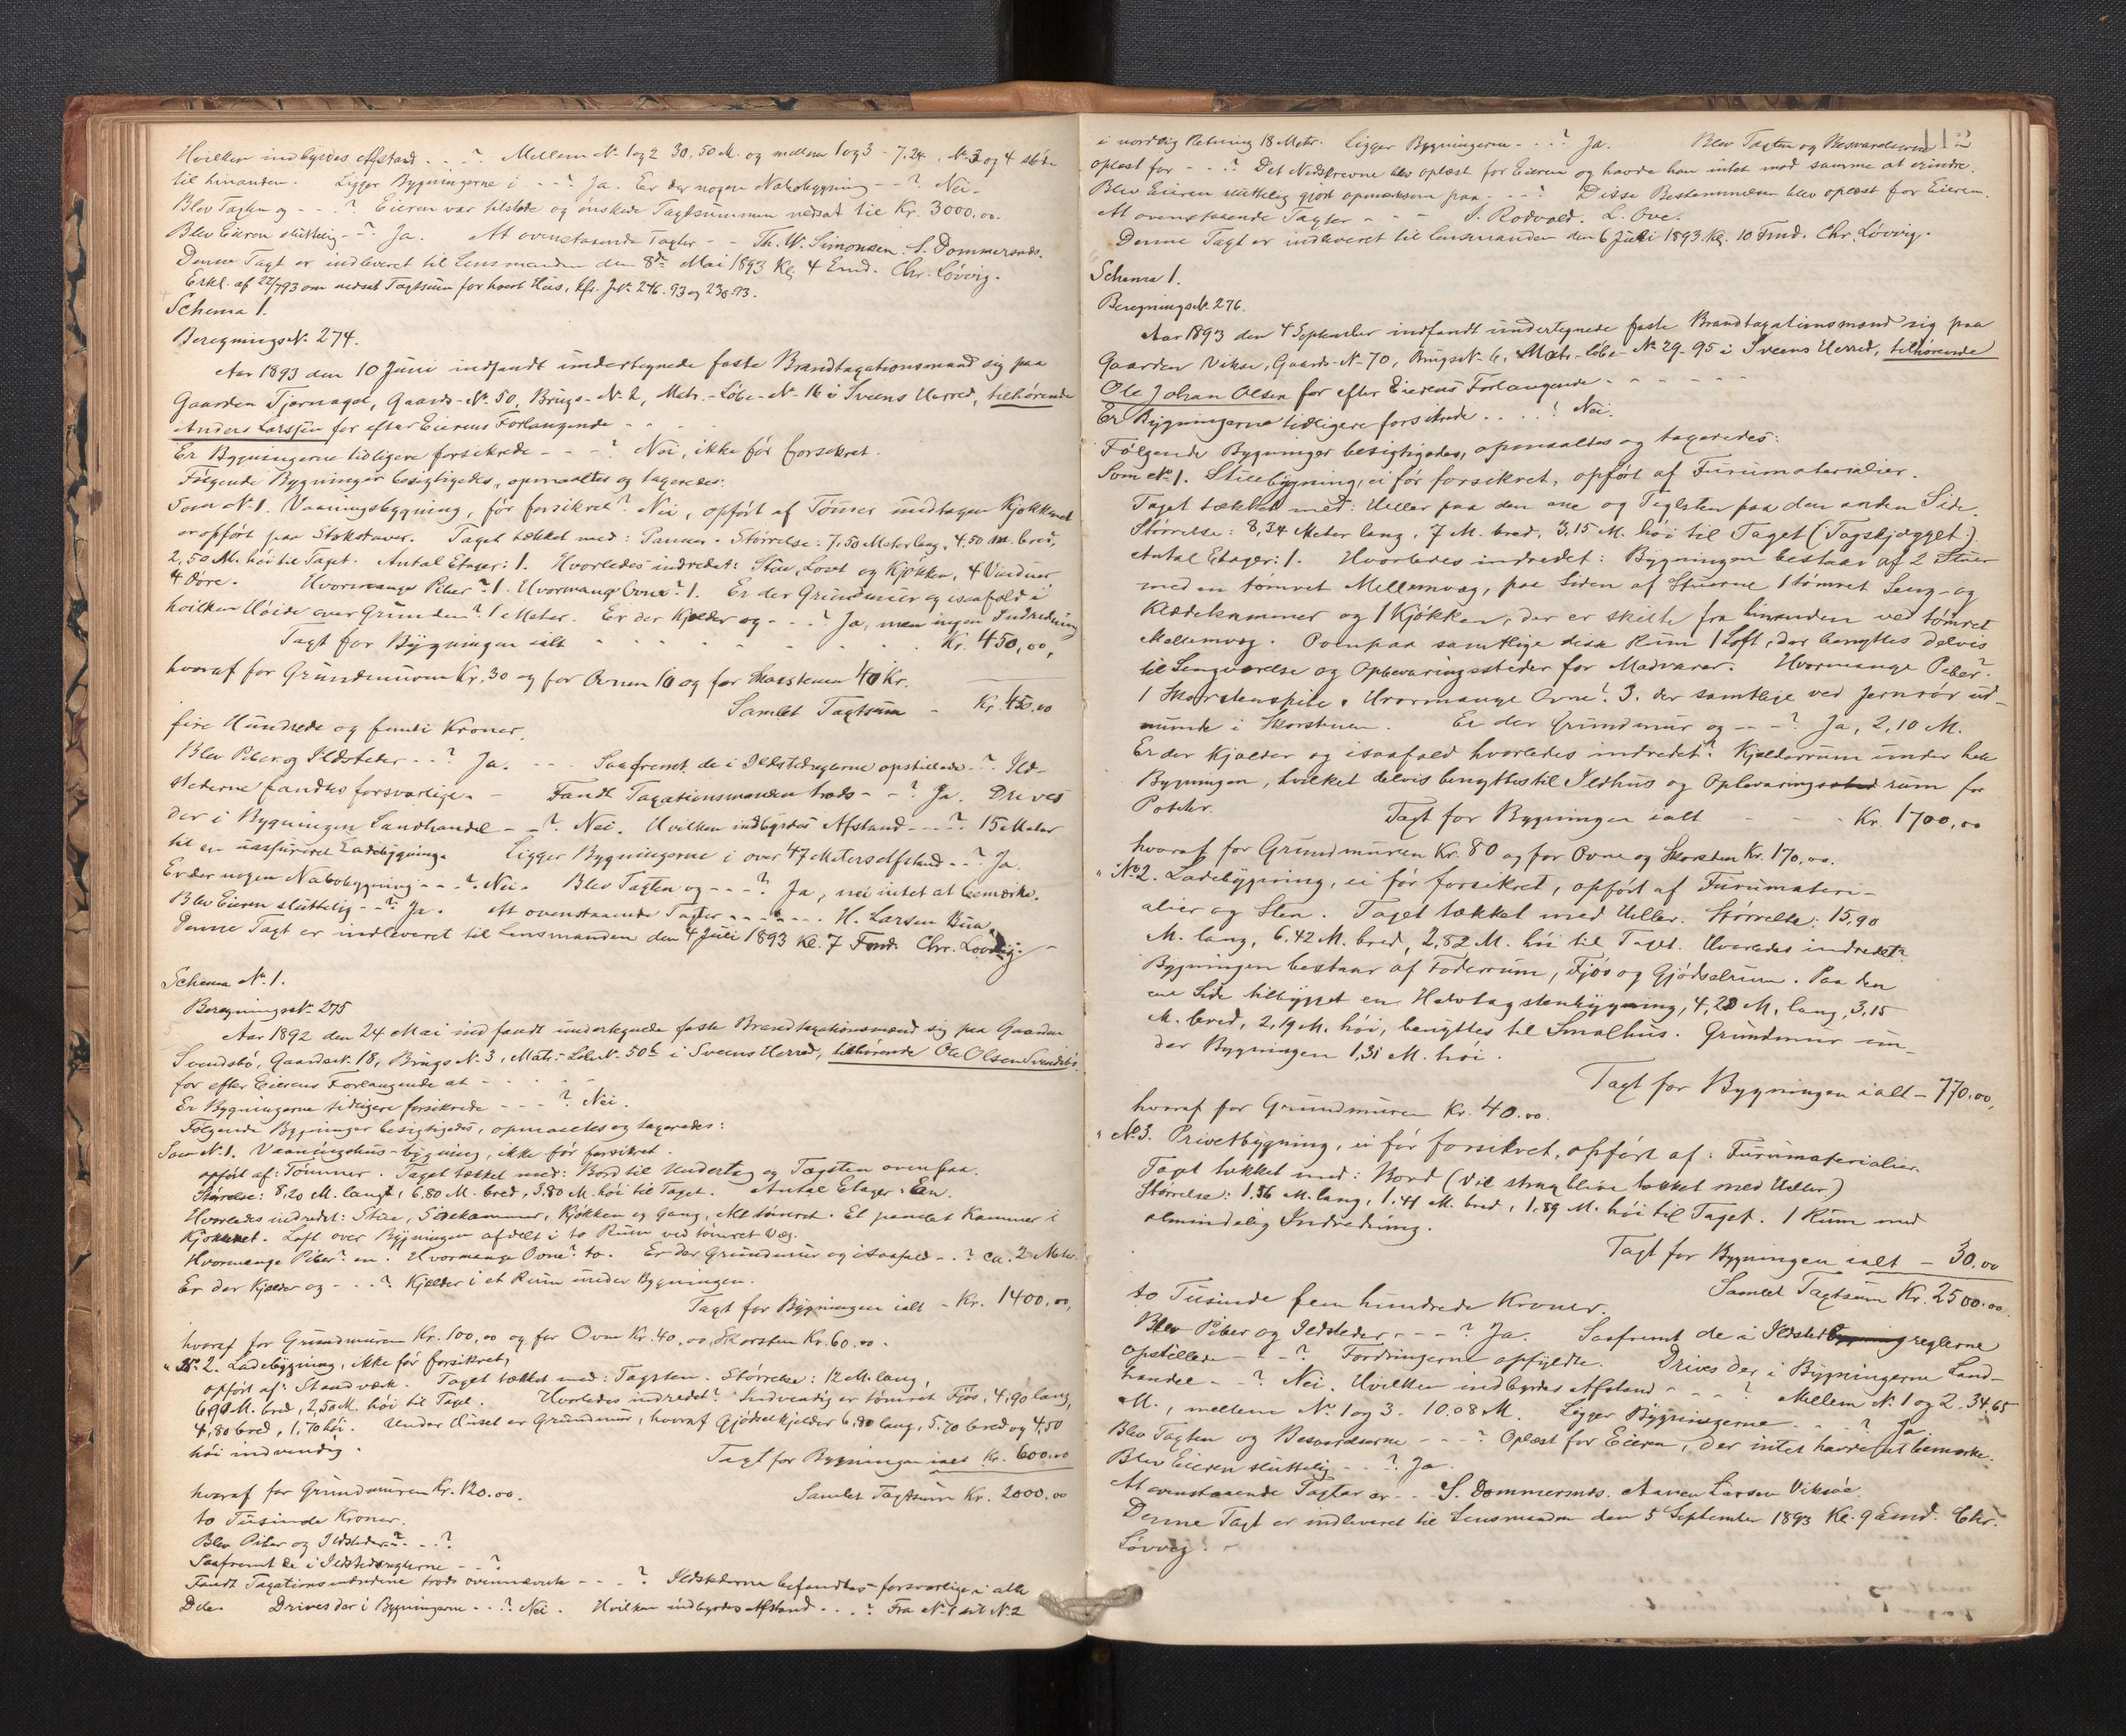 Hvilken indbyrdes Afstand - - -? Mellem No 1 og 2 30,50 M. og mellem 1 og 3 - 7,24, No 3 og 4 støde
til hinanden. Ligger Bygningerne i - - -? Ja. Er der nogen Nabobygning - -? Nei.
Blev Taxten og - - -? Eieren var tilstede og ønskede Taxtsummen nedsat til Kr. 3000,00.
Blev Eieren sluttelig - -? Ja. At ovenstaaende Taxter - - Th. W. Simonsen. S. Dommersnes.
Denne Taxt er indleveret til Lensmanden den 8de Mai 1893 Kl 4 Emd. Chr. Løvvig.
Erkl. af 22/7 93 om nedsat Taxtsum for hvert Hus, kfr. J.No 246.93 og 230.93.
Schema 1.
Beregnings No. 274.
Aar 1893 den 10 Juni indfandt undertegnede faste Brandtaxationsmænd sig paa
Gaarden Tjernagel, Gaards-No. 50, Brugs-No. 2, Matr.-Løbe-No. 16 i Sveens Herred, tilhørende
Anders Larssen for efter Eierens Forlangende - - -
Er Bygningerne tidligere forsikrede - - -? Nei, ikke før forsikret.
Følgende Bygninger besigtigedes, opmaaltes og taxeredes:
Som No 1. Vaaningsbygning, før forsikret? Nei, opført af Tømmer undtagen Kjøkkenet
er opført paa Stokstaver. Taget tækket med: Panner. Størrelse: 7,50 Meter lang, 4,50 m. bred,
2,50 M. høi til Taget. Antal Etager: 1. Hvorledes indredet: Stue, Lovet og Kjøkken, 4 Vinduer
4 Døre. Hvormange Piber? 1. Hvormange Ovne? 1. Er der Grundmur og isaafald i
hvilken Høide over Grunden? 1 Meter. Er der Kjælder og - - -? Ja, men ingen Indredning
Taxt for Bygningen ialt - - - - - Kr. 450,00,
hvoraf for Grundmuren Kr. 30 og for Ovnen 10 og for Skorstenen 40 Kr.
Samlet Taxtsum - Kr. 450.00
fire Hundrede og femti Kroner.
Blev Piber og Ildsteder - -? Ja. - - - Saafremt de i Ildstedreglerne opstillede -? Ild-
stederne fandtes forsvarlige. - Fandt Taxationsmænden trods - -? Ja. Drives
der i Bygningen Landhandel - -? Nei. Hvilken indbyrdes Afstand - - -? 15 Meter
til en uassureret Ladebygning. Ligger Bygningerne i over 47 Meters Afstand - -? Ja.
Er der nogen Nabobygning - - -? Nei. Blev Taxten og - - -? Ja, nei intet at bemærke.
Blev Eieren sluttelig - -? Ja. At ovenstaaende Taxter - - - - - H. Larsen Bua.
Denne Taxt er indleveret til Lensmanden den 4 Juli 1893 Kl. 7 Fmd. Chr. Løvvig.
Schema No. 1.
Beregnings No 275
Aar 1892 den 24 Mai indfandt undertegnede faste Brandtaxationsmænd sig paa Gaarden
Svendsbø, Gaards No. 18, Brugs No. 3, Matr.-Løbe No. 50b i Sveens Herred, tilhørende Ole Olsen Svendsbø,
for efter Eierens Forlangende at - - - -
Er Bygningerne tidligere forsikrede - - -? Nei.
Følgende Bygninger besigtigedes, opmaaltes og taxeredes:
Som No 1. Vaaningshus-bygning, ikke før forsikret.
opført af: Tømmer. Taget tækket med: Bord til Undertag og Tagsten ovenpaa.
Størrelse: 8,20 M. langt, 6,80 M. bred, 3,80 M. høi til Taget. Antal Etager: En.
Hvorledes indredet: Stue, Sidekammer, Kjøkken og Gang, Alt tømret. Et panelet Kammer i
Kjøkkenet. Loft over Bygningen afdelt i to Rum ved tømret Væg.
Hvormange Piber? en. Hvormange Ovne? to. Er der Grundmur og isaafald - -? ca. 2 Meter.
Er der Kjælder og - - -? Kjælder i et Rum under Bygningen.
Taxt for Bygningen ialt - Kr. 1400,00,
hvoraf for Grundmuren Kr. 100,00 og for Ovne Kr. 40,00, Skorsten Kr. 60.00.
" No. 2. Ladebygning, ikke før forsikret,
opført af: Standværk. Taget tækket med: Tagsten. Størrelse: 12 M. lang,
6,90 M. bred, 2,50 M. høi til Taget. Hvorledes indredet? Indvendig er tømret Fjøs, 4,90 lang,
4,80 bred, 1,70 høi. Under Huset er Grundmur, hvoraf Gjødselkjelder 6,80 lang, 5,70 bred og 4,50
høi indvendig. Taxt for Bygningen ialt Kr. 600.00
hvoraf for Grundmuren Kr. 120.00. Samlet Taxtsum Kr. 2000.00
to Tusinde Kroner.
Blev Piber og Ildsteder? - -?
Saafremt de i Ildstedsreglerne - -?
Fandt Taxationsmændene trods ovennævnte - - -? Ildstederne befandtes forsvarlige i alle
Dele. Drives der i Bygningerne - -? Nei. Hvilken indbyrdes Afstand - - -? Fra No 1 til No 2
112
i nordlig Retning 18 Metr. Ligger Bygningerne - - -? Ja. Blev Taxten og Besvarelserne
oplæst for - - -? Det Nedskrevne blev oplæst for Eieren og havde han intet mod samme at erindre.
Blev Eieren sluttelig gjort opmærksom paa - - -? Disse Bestemmelser blev oplæst for Eieren.
At ovenstaaende Taxter - - - S. Rødvold. L. Ove.
Denne Taxt er indleveret til Lensmanden den 6 Juli 1893 Kl. 10 Fmd. Chr. Løvvig.
Schema 1.
Beregnings No. 276.
Aar 1893 den 4 September indfandt undertegnede faste Brandtaxationsmænd sig paa
Gaarden Vikse, Gaards-No. 70, Brugs No. 6, Matr.-Løbe-No 29-95 i Sveens Herred, tilhørende
Ole Johan Olsen for efter Eierens Forlangende - - - - - -
Er Bygningerne tidligere forsikrede - - - -? Nei.
Følgende Bygninger besigtigedes, opmaaltes og taxeredes:
Som No. 1. Stuebygning, ei før forsikret, opført af Furumaterialier.
Taget tækket med: Heller paa den ene og Teglsten paa den anden Side.
Størrelse: 8,34 Meter lang, 7 M. bred, 3,15 M. høi til Taget (Tagskjægget).
Antal Etager: 1. Hvorledes indredet: Bygningen bestaar af 2 Stuer
med en tømret Mellemvæg, paa Siden af Stuerne 1 tømret Seng- og
Klædekammer og 1 Kjøkken, der er skilte fra hinanden ved tømret
Mellemvæg. Ovenpaa samtlige disse Rum 1 Loft, der benyttes delvis
til Sengværelse og Opbevaringssteder for Madvarer. Hvormange Piber?
1 Skorstenspibe. Hvormange Ovne? 3. der samtlige ved Jernrør ud-
munde i Skorstenen. Er der Grundmur og - - -? Ja, 2,10 M.
Er der Kjælder og isaafald hvorledes indredet? Kjælderrum under hele
Bygningen, hvilket delvis benyttes til Ildhus og Opbevarings rum for
Poteter. Taxt for Bygningen ialt - - - Kr. 1700,00
hvoraf for Grundmuren Kr. 80 og for Ovne og Skorsten Kr. 170,00.
" No 2. Ladebygning, ei før forsikret, opført af Furumateri-
alier og Sten. Taget tækket med Heller. Størrelse: 15,90
M. lang, 6,42 M. bred, 2,82 M. høi til Taget. Hvorledes indredet?
Bygningen bestaar af Foderrum, Fjøs og Gjødselrum. Paa den
ene Side tilbygget en Halvtagstenbygning, 4,20 M. lang, 3,15
M. bred, 2,19 M. høi, benyttes til Smalhus. Grundmur un-
der Bygningen 1,31 M. høi.
Taxt for Bygningen ialt - 770.00,
hvoraf for Grundmuren Kr. 40.00.
" No 3. Privetbygning, ei før forsikret, opført af: Furumaterialier.
Taget tækket med: Bord (vil strax blive tækket med Heller)
Størrelse: 1.56 M. lang, 1.41 M. bred, 1,89 M. høi til Taget. 1 Rum med
almindelig Indredning.
Taxt for Bygningen ialt - 30.00
Samlet Taxtsum Kr. 2500.00
to Tusinde fem hundrede Kroner.
Blev Piber og Ildsteder - - -? Ja. Saafremt de i Ildsted reglerne
opstillede - - -? Fordringerne opfyldte. Drives der i Bygningerne Land-
handel - -? Nei. Hvilken indbyrdes Afstand - - - -? Mellem No. 1 og 2 - 34.65
M., mellem No. 1 og 3 - 10.08 M. Ligger Bygningerne - - -? Ja.
Blev Taxten og Besvarelserne - - -? Oplæst for Eieren, der intet havde at bemærke.
Blev Eieren sluttelig - -? Ja.
At ovenstaaende Taxter er - - S. Dommersnes. Aanen Larsen Viksøe.
Denne Taxt er indleveret til Lensmanden den 5 September 1893 Kl. 9 Emd. Chr.
Løvvig.